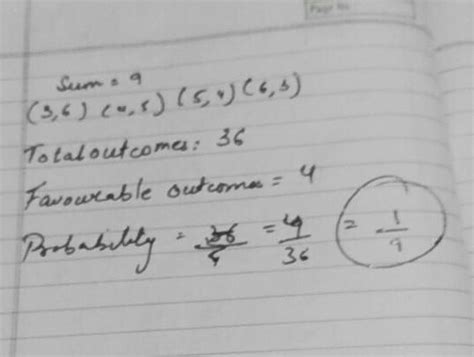 Page No.
Sum = 9
(3,6) (4,5) (5,4) (6,3)
Total outcomes: 36
Favourable outcomes = 4
Probability = 36/4 = 4/36 = 1/9